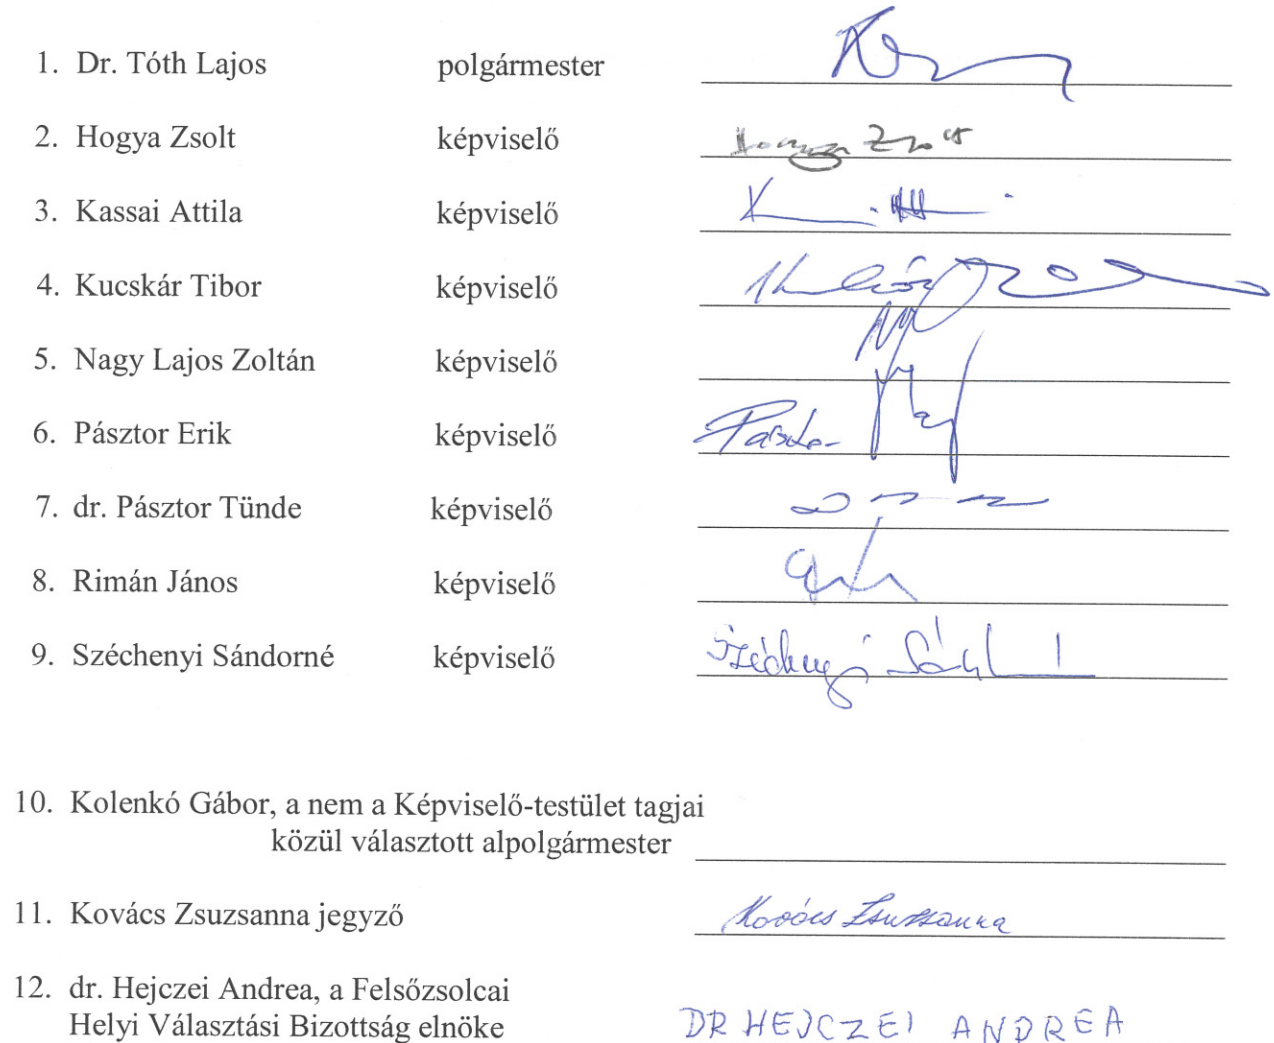 1. Dr. Tóth Lajos polgármester
2. Hogya Zsolt képviselő
3. Kassai Attila képviselő
4. Kucskár Tibor képviselő
5. Nagy Lajos Zoltán képviselő
6. Pásztor Erik képviselő Pásztor
7. dr. Pásztor Tünde képviselő
8. Rimán János képviselő
9. Széchenyi Sándorné képviselő Széchenyi
10. Kolenkó Gábor, a nem a Képviselő-testület tagjai
közül választott alpolgármester
11. Kovács Zsuzsanna jegyző Kovács Zsuzsanna
12. dr. Hejczei Andrea, a Felsőzsolcai
Helyi Választási Bizottság elnöke DR HEJCZEI ANDREA